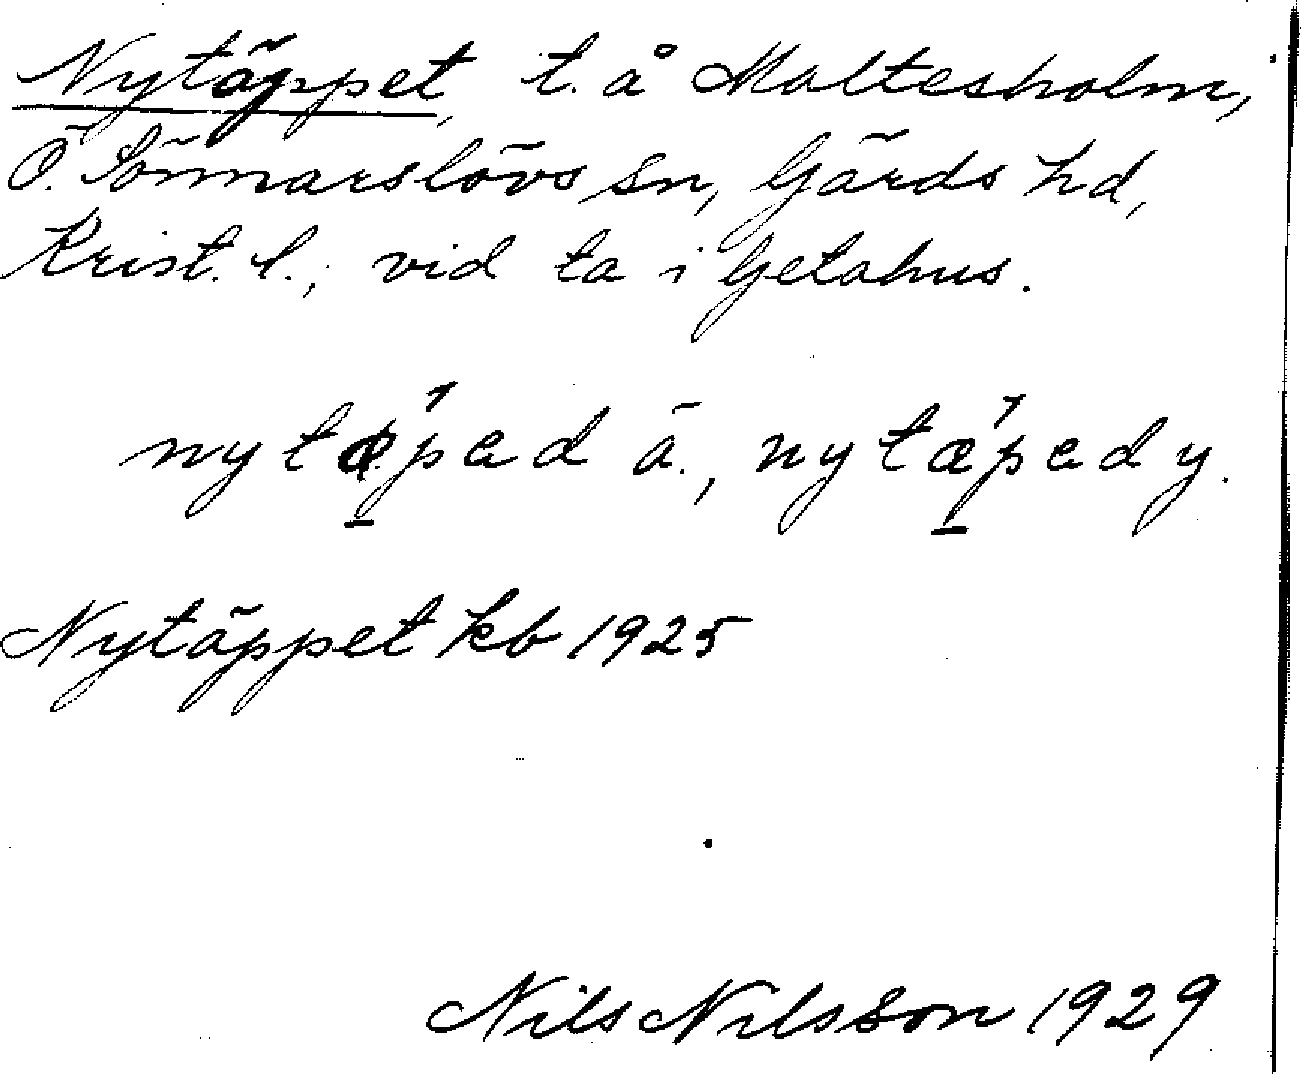 Nytäppet, t. å Maltesholm,
Ö. Sönnarslövs sn, Gärds hd,
Krist. l., vid ta i Getahus.
nytæ̱ʹped ä., nytæ̱ʹped y.
Nytäppet kb 1925
Nils Nilsson 1929